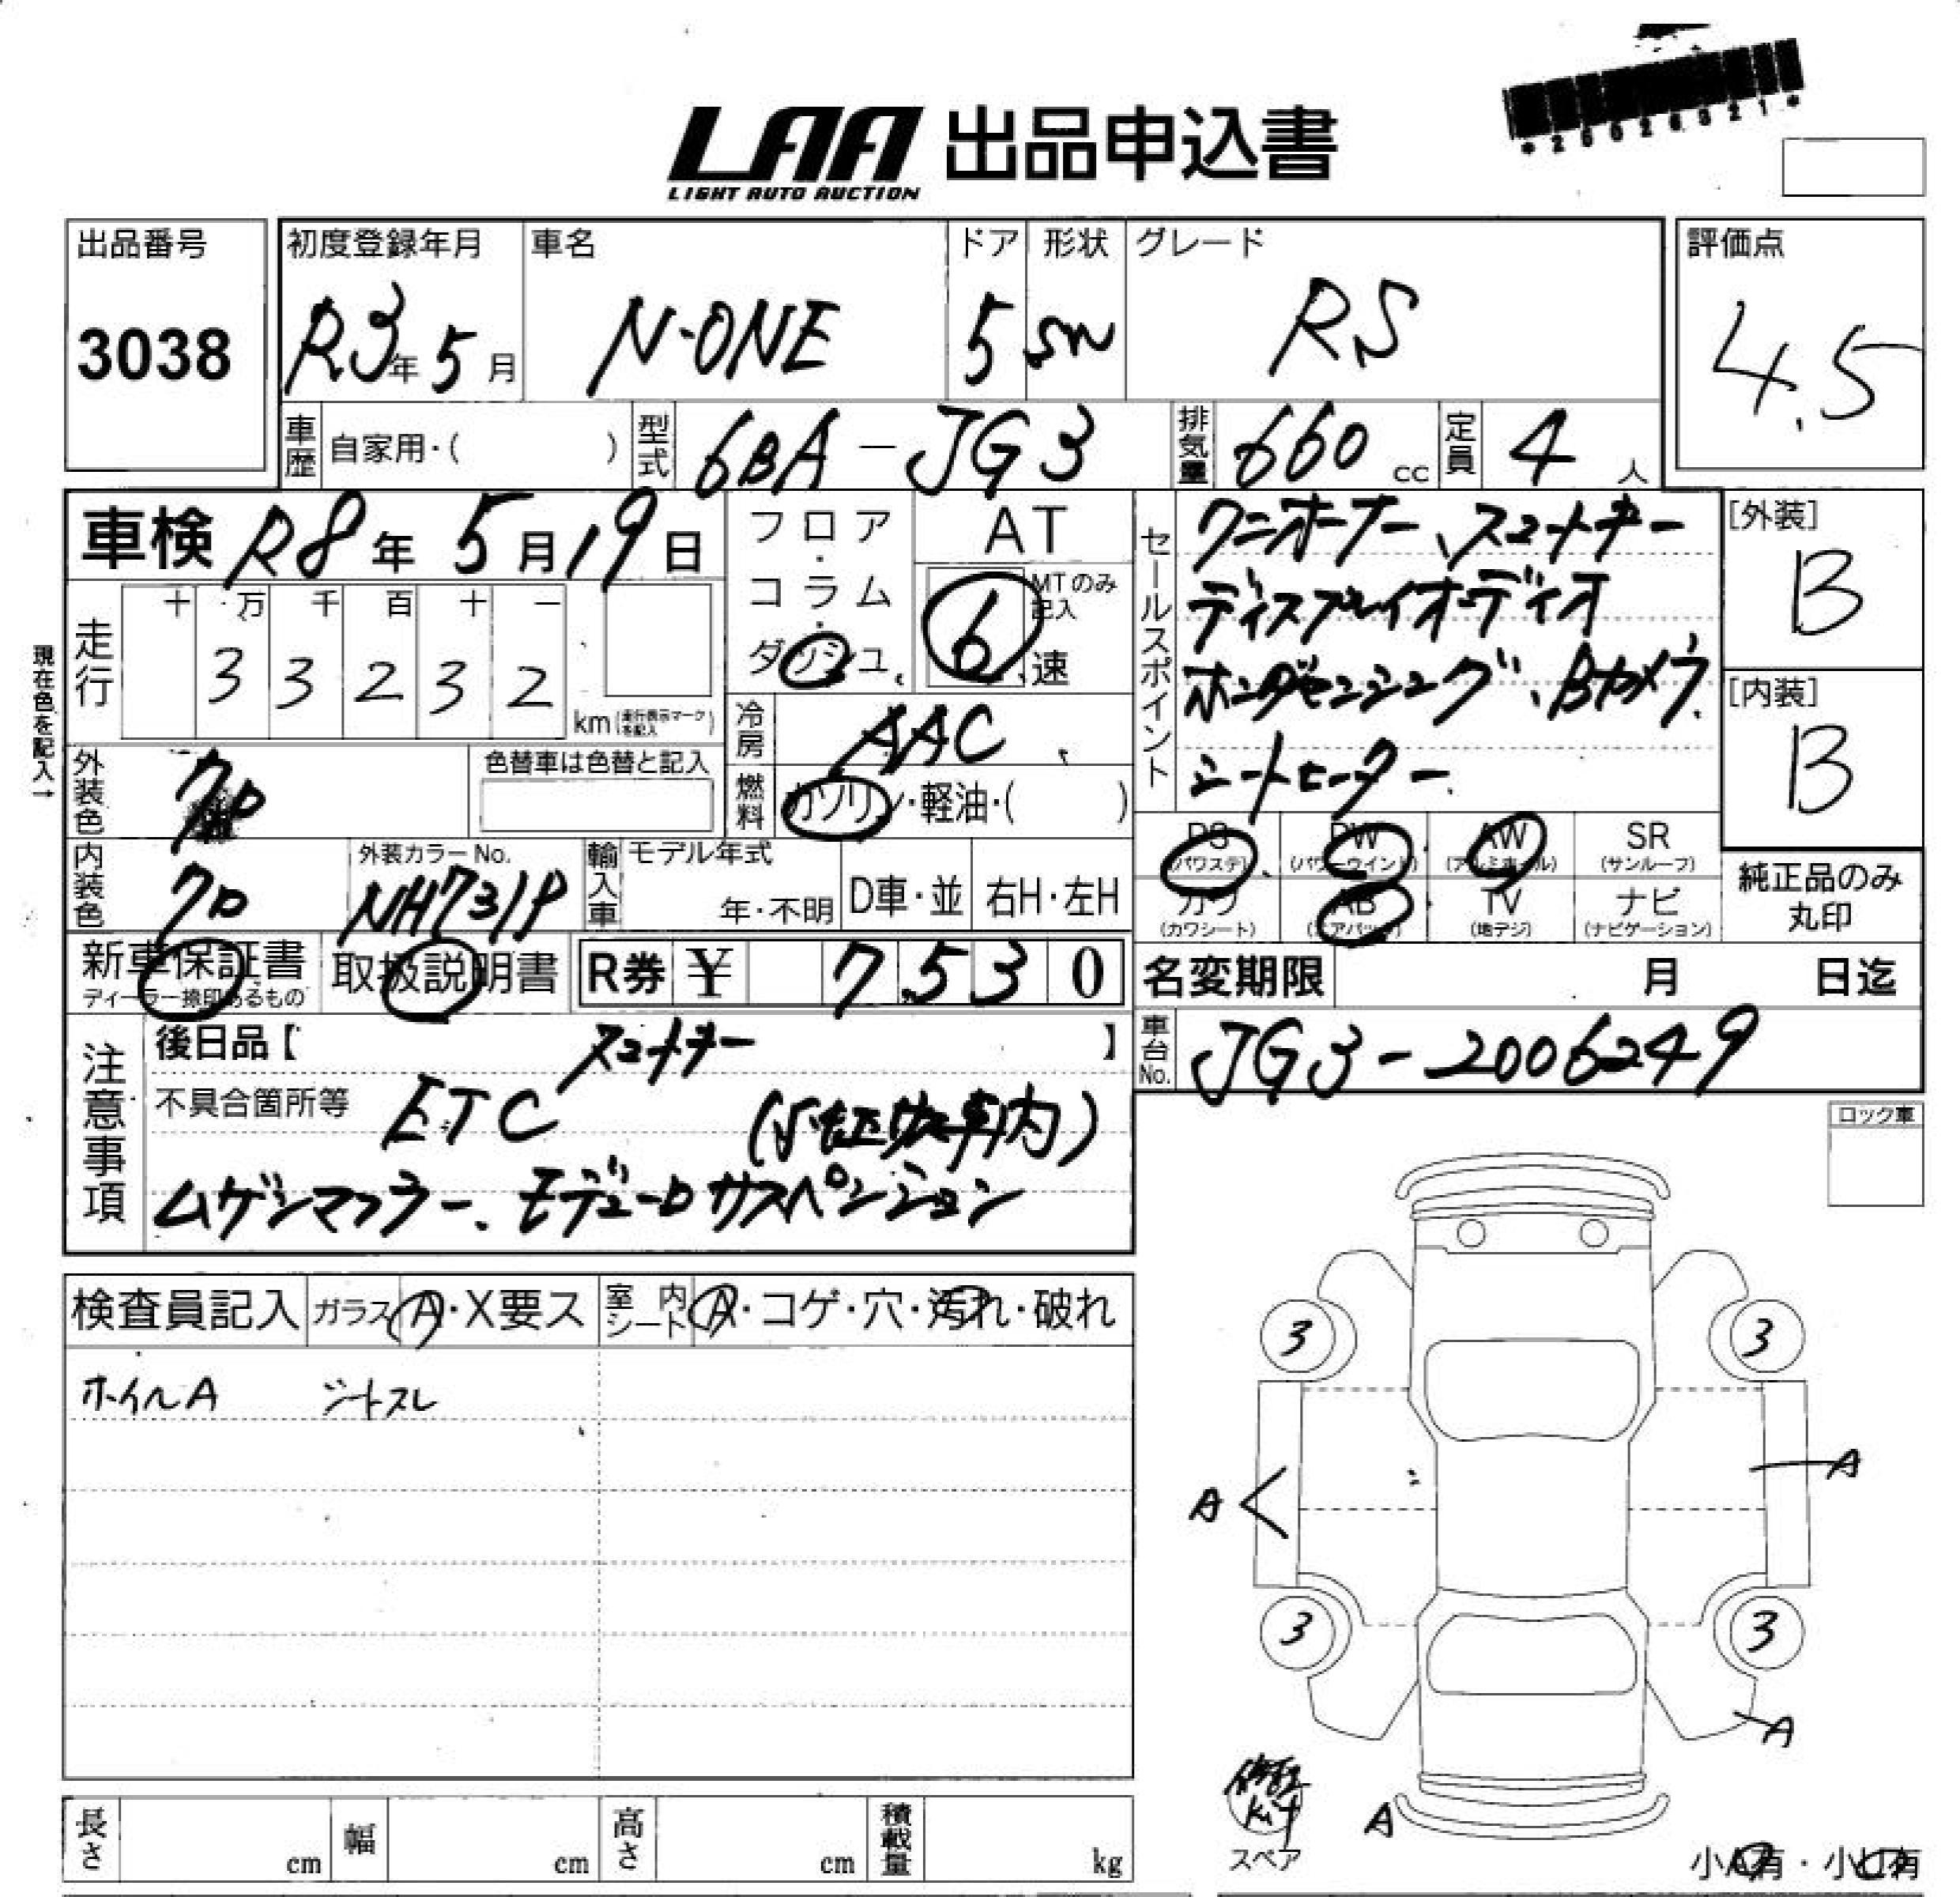 *25026321*
LAA 出品申込書
LIGHT AUTO AUCTION
出品番号
3038
初度登録年月
R3年5月
車名
N-ONE
ドア
5
形状
SN
グレード
RS
評価点
4.5
車歴 自家用・( )
型式 6BA-JG3
排気量 660cc
定員 4人
車検 R8年5月19日
現在色を記入→
走行
十 万 千 百 十 一
3 3 2 3 2
km(走行表示マークを記入)
フロア・コラム・ダッシュ
AT
6速
MTのみ記入
冷房 AAC
燃料 ガソリン・軽油・( )
外装色 クロ
色替車は色替と記入
内装色 クロ
外装カラーNo.
NH731P
輸入車
モデル年式
年・不明
D車・並
右H・左H
セールスポイント
ワンオーナー、スマートキー
ディスプレイオーディオ
ホンダセンシング、Bカメラ、
シートヒーター
[外装]
B
[内装]
B
PS(パワステ) PW(パワーウインド) AW(アルミホイール) SR(サンルーフ)
カワ(カワシート) AB(エアバッグ) TV(地デジ) ナビ(ナビゲーション)
純正品のみ丸印
新車保証書
ディーラー捺印あるもの
取扱説明書
R券 ¥ 7,530
名変期限 月 日迄
車台No. JG3-2006249
注意事項
後日品【 スマートキー 】
不具合箇所等 ETC
ムゲンマフラー、モデューロサスペンション
ロック車
検査員記入
ガラス A・X要ス
室内シート A・コゲ・穴・汚れ・破れ
ホイルA シートスレ
3 3
A A
3 3
A
A
修理
Kit
スペア
小A有・小U有
長さ cm 幅 cm 高さ cm 積載量 kg